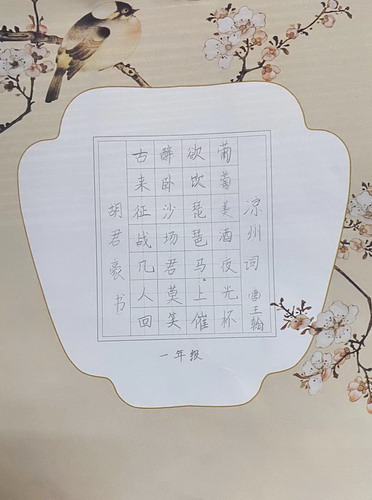 凉州词 唐王翰
葡萄美酒夜光杯
欲饮琵琶马上催
醉卧沙场君莫笑
古来征战几人回
胡君豪书
一年级